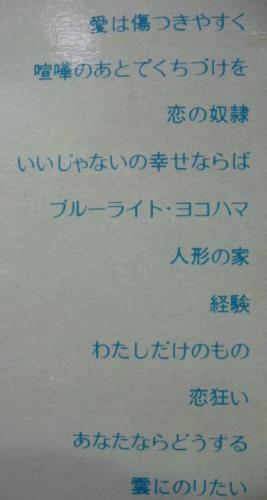 愛は傷つきやすく
喧嘩のあとでくちづけを
恋の奴隷
いいじゃないの幸せならば
ブルーライト・ヨコハマ
人形の家
経験
わたしだけのもの
恋狂い
あなたならどうする
雲にのりたい